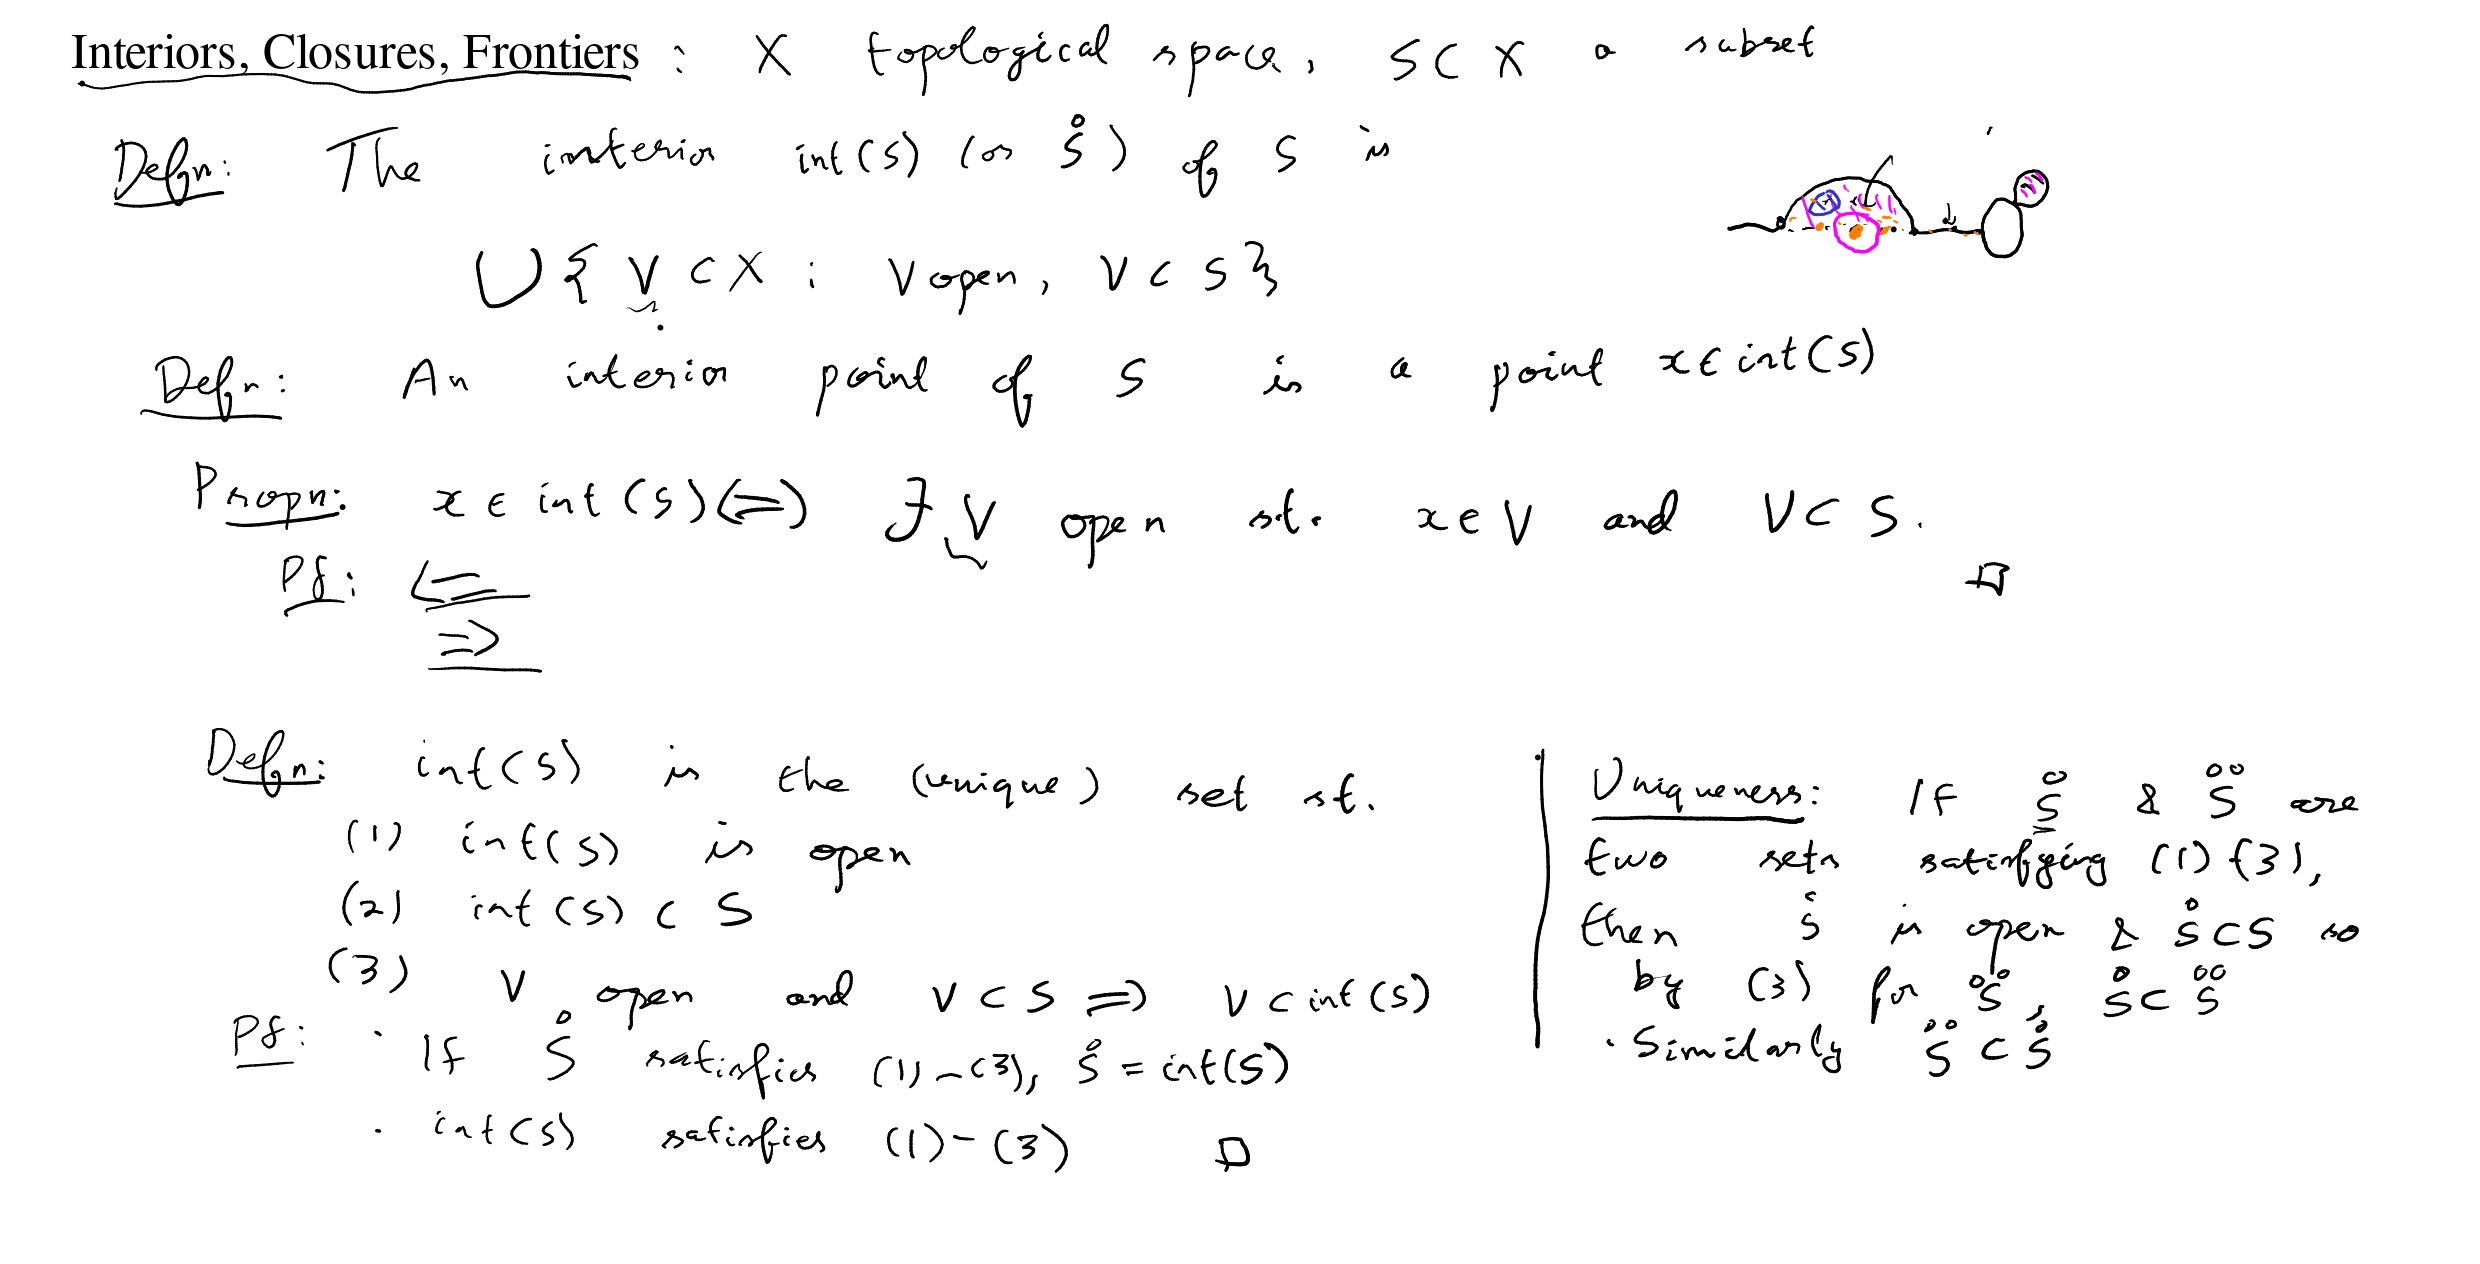 Interiors, Closures, Frontiers : X topological space, S ⊂ X a subset
Defn: The interior int(S) (or S̊) of S is
∪{ V ⊂ X : V open, V ⊂ S}
Defn: An interior point of S is a point x ∈ int(S)
Propn: x ∈ int(S) ⟺ ∃ V open s.t. x ∈ V and V ⊂ S.
Pf: ⇐ □
⇒
Defn: int(S) is the (unique) set st.
(1) int(S) is open
(2) int(S) ⊂ S
(3) V open and V ⊂ S ⇒ V ⊂ int(S)
Pf: · If S̊ satisfies (1)-(3), S̊ = int(S)
· int(S) satisfies (1)-(3) □
Uniqueness: If S̊ & S̊̊ are
two sets satisfying (1)-(3),
then S̊ is open & S̊ ⊂ S so
by (3) for S̊̊, S̊ ⊂ S̊̊
· Similarly S̊̊ ⊂ S̊